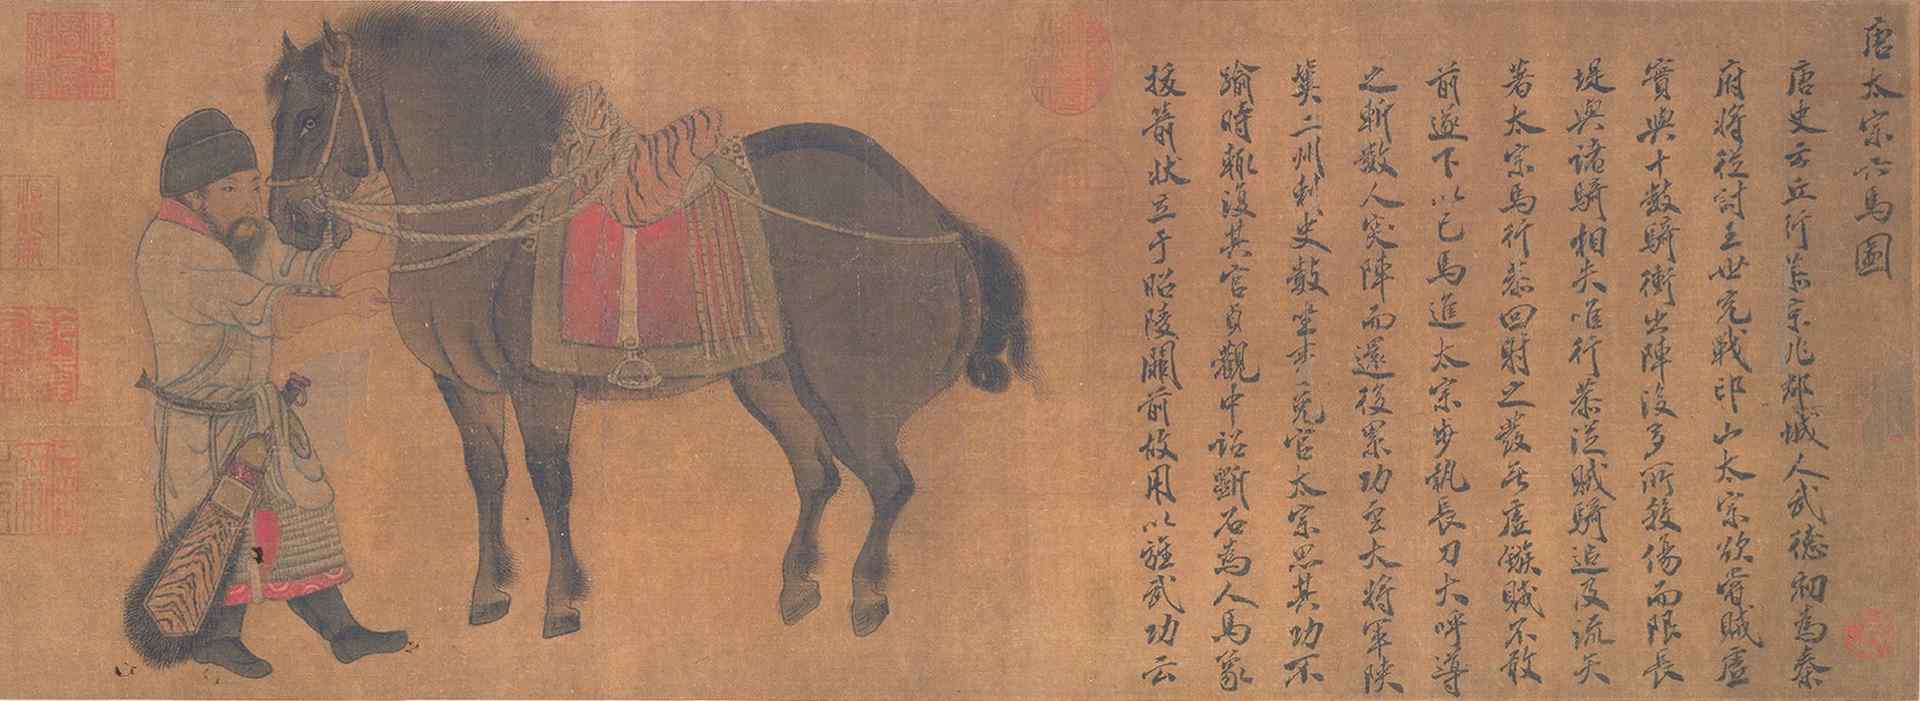 唐太宗六馬圖
唐史云丘行恭京兆郿城人武德初為秦
府將從討王世充戰邙山太宗欲嘗賊虛
實與十數騎衝出陣後多所殺傷而限長
堤與諸騎相失唯行恭從賊騎追及流矢
著太宗馬行恭回射之發無虛鏃賊不敢
前遂下以己馬進太宗步執長刀大呼導
之斬數人突陣而還後累功至大將軍陝
冀二州刺史數坐事免官太宗思其功不
踰時輒復其官貞觀中詔斲石為人馬象
拔箭狀立于昭陵闕前故用以旌武功云